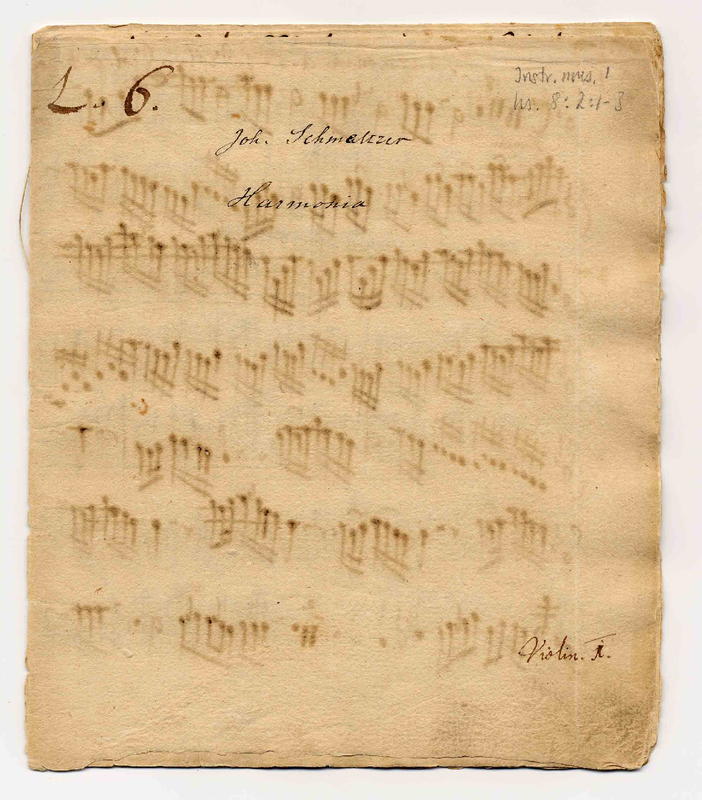 L. 6.
Instr. mus. 1
hs. 8:2:1-3
Joh. Schmeltzer
Harmonia
Violin. I.